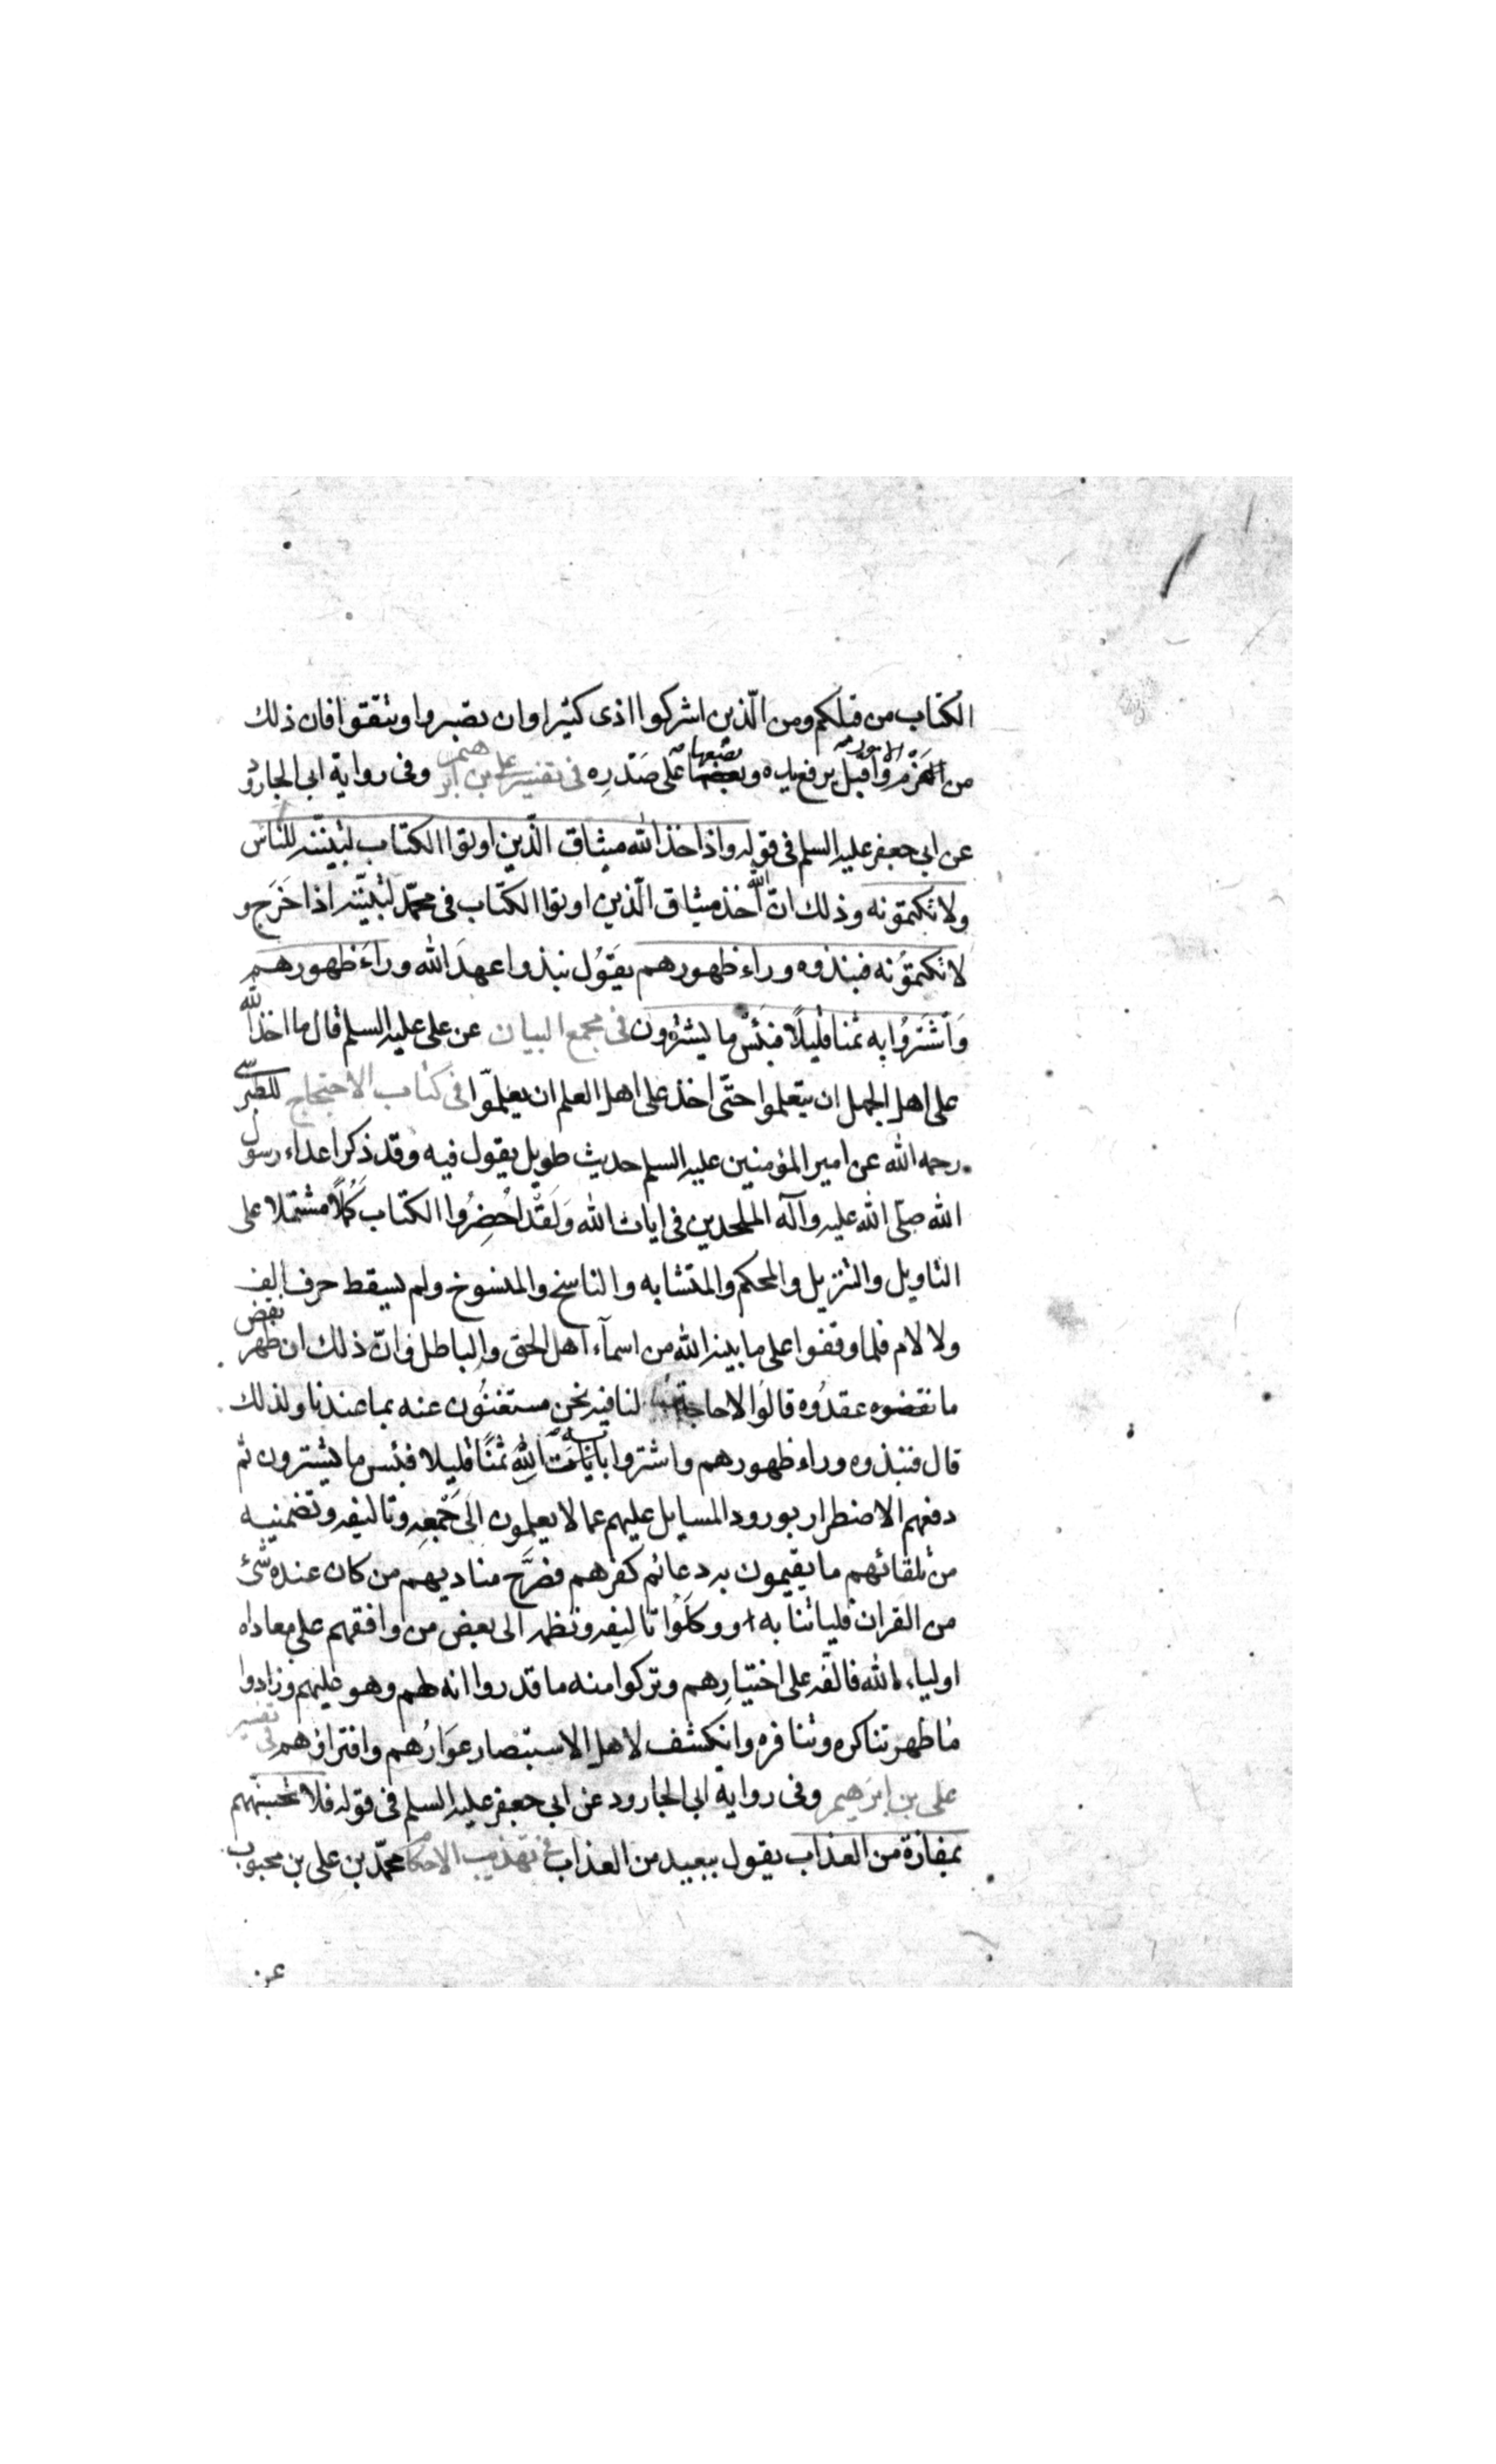 الكتاب من قبلكم ومن الّذين اشركوا اذى كثيرا وان تصبروا وتتقوا فان ذلك
من عزم الامور واقبل يرفع يده ويضعها على صَدْرِه فى تفسير على بن ابرهيم وفى رواية ابى الجارود
عن ابى جعفر عليه السلم فى قوله واذ اخذ الله ميثاق الّذين اوتوا الكتاب لتبيّننه للناس
ولا تكتمونه وذلك انّ الله اخذ ميثاق الّذين اوتوا الكتاب فى محمّد لتبيّننه اذا خَرَج و
لا تكتمونه فنبذوه وراء ظهورهم يقول نبذوا عهدَ الله وراءَ ظهورهم
وَاشْتَرَوُا به ثمنا قليلًا فبئس ما يشترون فى مجمع البيان عن على عليه السلم قال ما اخذ الله
على اهل الجهل ان يتعلموا حتّى اخذ على اهل العلم ان يعلّموا فى كتاب الاحتجاج للطبرسى
رحمه الله عن امير المؤمنين عليه السلم حديث طويل يقول فيه وقد ذكر اعداء رسول
الله صلّى الله عليه وآله الملحدين فى ايات الله وَلَقَد اُحْضِرُوا الكتاب كَمُلًا مشتملا على
التاويل والتنزيل والمحكم والمتشابه والناسخ والمنسوخ ولم يسقط حرف الف
ولا لام فلما وقفوا على ما بينه الله من اسمآء اهل الحق والباطل وانّ ذلك ان ظهر نقض
ما نقضوه عقدُوه قالُوا لا حاجة لنا فيه نحن مستغنُون عنه بما عندنا ولذلك
قال فنبذوه وراء ظهورهم واشتروا به ثمنًا قليلا فبئس ما يشترون ثم
دفعهم الاضطرار بورود المسايل عليهم عما لا يعلمون الى جَمْعِه وتاليفه وتضمنيه
من تلقائهم ما يقيمون به دعائم كفرهم فصَرَّح مناديهم من كان عنده شئ
من القران فلياتنا به ووكلَوُا تاليفه ونظمه الى بعض من وافقهم على معاداه
اولياء الله فالّفه على اختيارهم وتركوا منه ما قدروا انه لهم وهو عليهم وزادوا
ما ظهر تناكره وتنافره وانكشف لاهل الاستبصار عَوَارُهم وافتراؤهم فى تفسير
على بن ابرهيم وفى رواية ابى الجارود عن ابى جعفر عليه السلم فى قوله فلا تحسبنّهم
بمفازة من العذاب يقول ببعيد من العذاب فى تهذيب الاحكام محمّد بن على بن محبوب
عن